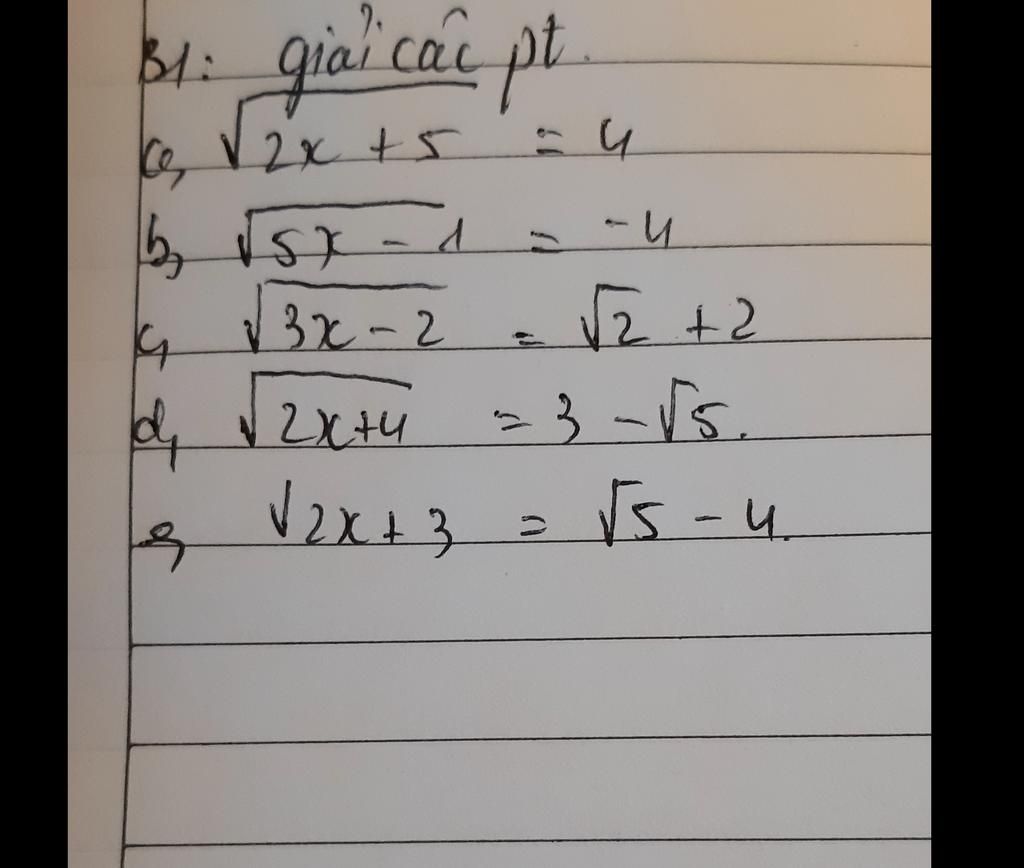 B1: giải các pt.
a, √2x + 5 = 4
b, √5x - 1 = -4
c, √3x - 2 = √2 + 2
d, √2x+4 = 3 - √5.
e, √2x + 3 = √5 - 4.